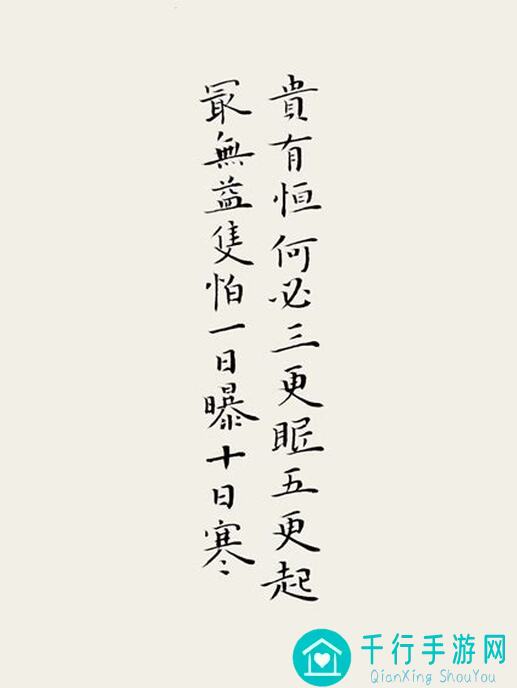 貴有恒何必三更眠五更起
最無益隻怕一日曝十日寒
千行手游网
QianXing ShouYou